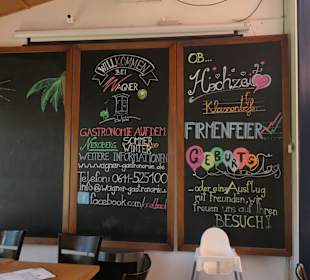 WILLKOMMEN
BEI
WAGNER
GASTRONOMIE AUF DEM
NEROBERG SOMMER
WINTER
WEITERE INFORMATIONEN
www.wagner-gastronomie.de
Telefon: 0611-525100
info@wagner-gastronomie.de
facebook.com/
OB...
Hochzeit
Klassentreffen
FIRMENFEIER
GEBURTSTag
...oder eine Ausflug
mit Freunden, wir
freuen uns auf Ihren
BESUCH!